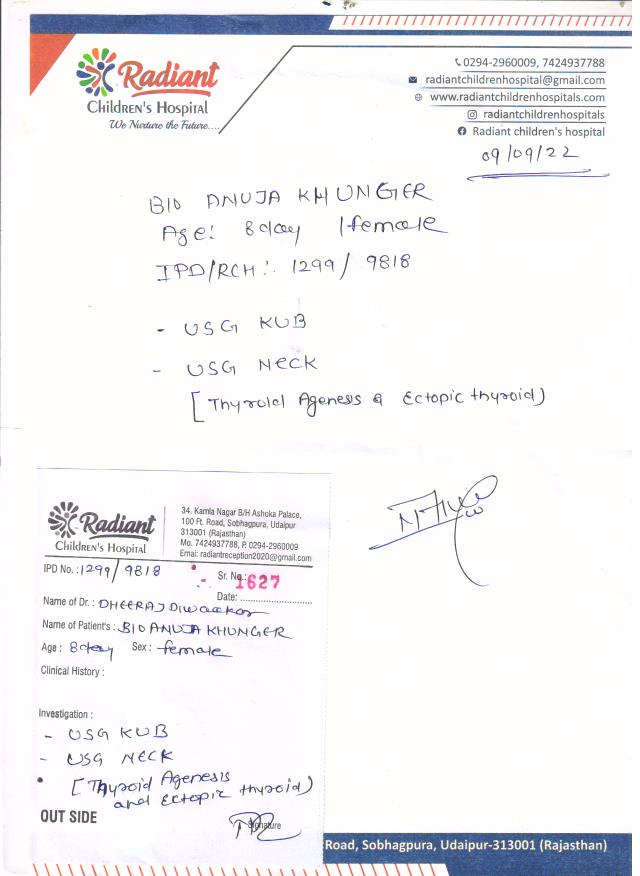 Radiant
Children's Hospital
We Nurture the Future....
0294-2960009, 7424937788
radiantchildrenhospital@gmail.com
www.radiantchildrenhospitals.com
radiantchildrenhospitals
Radiant children's hospital
09/09/22
B/O ANUJA KHUNGER
Age: 8 day / female
IPD/RCH :. 1299 / 9818
- USG KUB
- USG NECK
[Thyroid Agenesis & Ectopic thyroid)
Radiant
Children's Hospital
34, Kamla Nagar B/H Ashoka Palace,
100 Ft. Road, Sobhagpura, Udaipur
313001 (Rajasthan)
Mo. 7424937788, P. 0294-2960009
Emai: radiantreception2020@gmail.com
IPD No. : 1299/ 9818
Sr. No.: 1627
Date: ....................
Name of Dr. : DHEERAJ Diwaakar
Name of Patient's : B/O ANUJA KHUNGER
Age : 8 day Sex : female
Clinical History :
Investigation :
- USG KUB
- USG NECK
[Thyroid Agenesis
and Ectopic thyroid)
OUT SIDE
Signature
Road, Sobhagpura, Udaipur-313001 (Rajasthan)